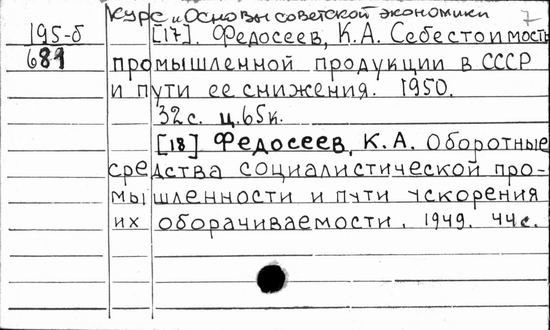 Курс „Основы советской экономики 7
195-б [17]. Федосеев, К.А. Себестоимость
681 промышленной продукции в СССР
и пути ее снижения. 1950.
32с. ц.65к.
[18] Федосеев, К.А. Оборотные
средства социалистической про-
мышленности и пути ускорения
их оборачиваемости. 1949. 44с.